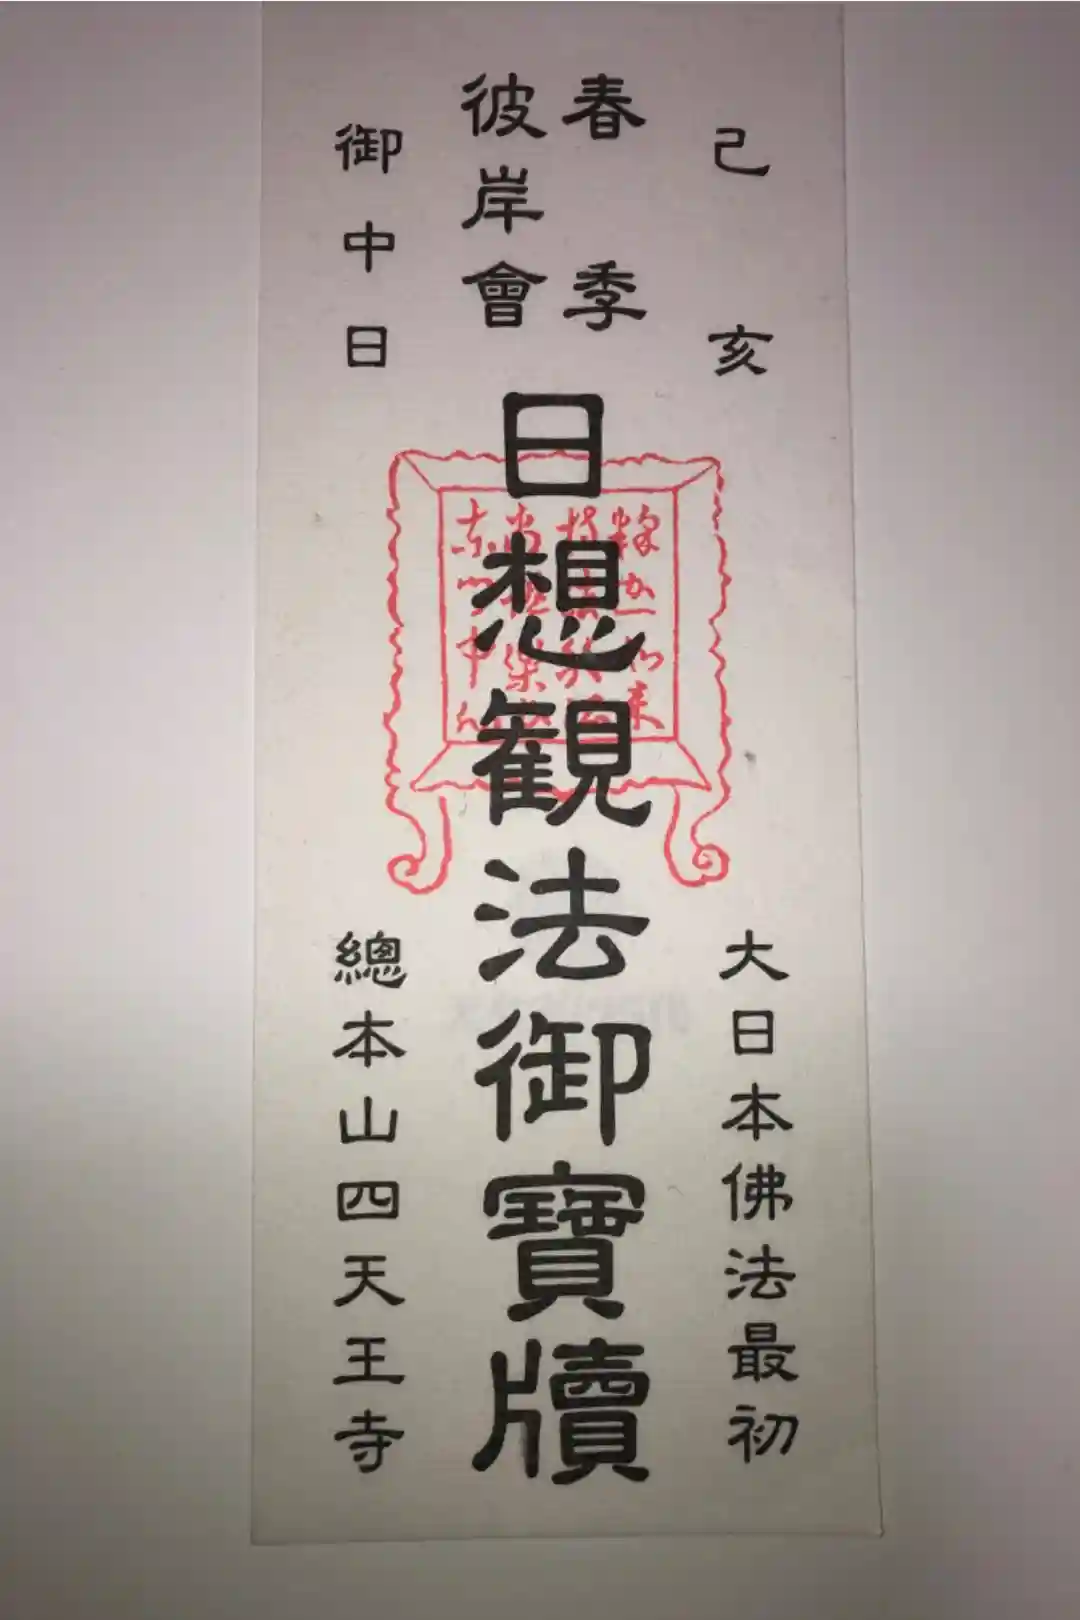 己亥
大日本佛法最初
春季
彼岸會
日想観法御寶牘
御中日
總本山四天王寺